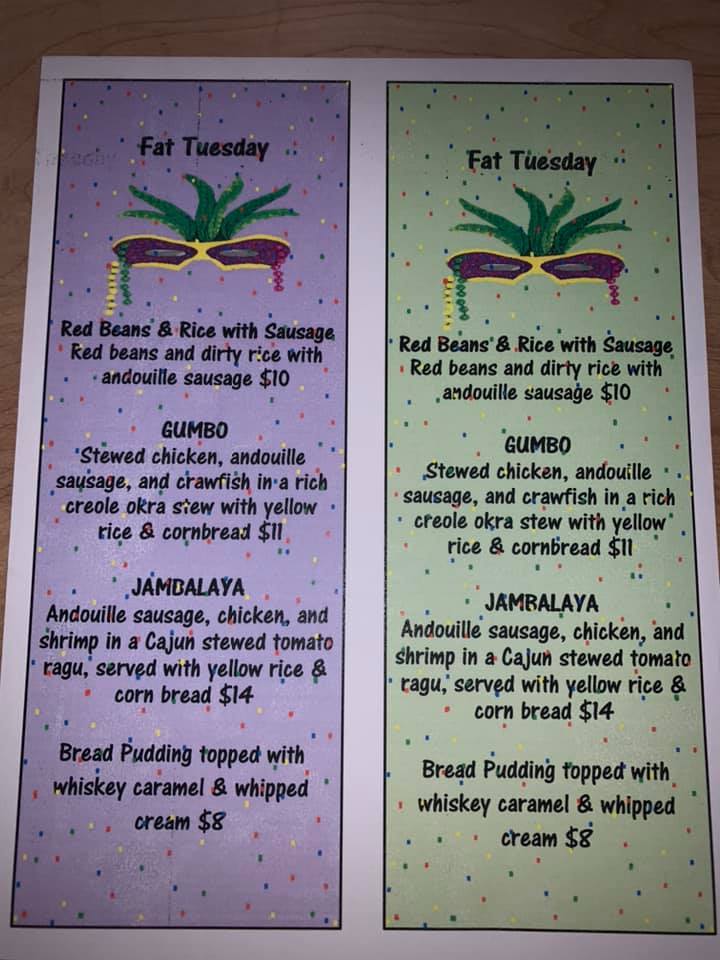 Fat Tuesday
Red Beans & Rice with Sausage
Red beans and dirty rice with
andouille sausage $10
GUMBO
Stewed chicken, andouille
sausage, and crawfish in a rich
creole okra stew with yellow
rice & cornbread $11
JAMBALAYA
Andouille sausage, chicken, and
shrimp in a Cajun stewed tomato
ragu, served with yellow rice &
corn bread $14
Bread Pudding topped with
whiskey caramel & whipped
cream $8
Fat Tuesday
Red Beans & Rice with Sausage
Red beans and dirty rice with
andouille sausage $10
GUMBO
Stewed chicken, andouille
sausage, and crawfish in a rich
creole okra stew with yellow
rice & cornbread $11
JAMBALAYA
Andouille sausage, chicken, and
shrimp in a Cajun stewed tomato
ragu, served with yellow rice &
corn bread $14
Bread Pudding topped with
whiskey caramel & whipped
cream $8